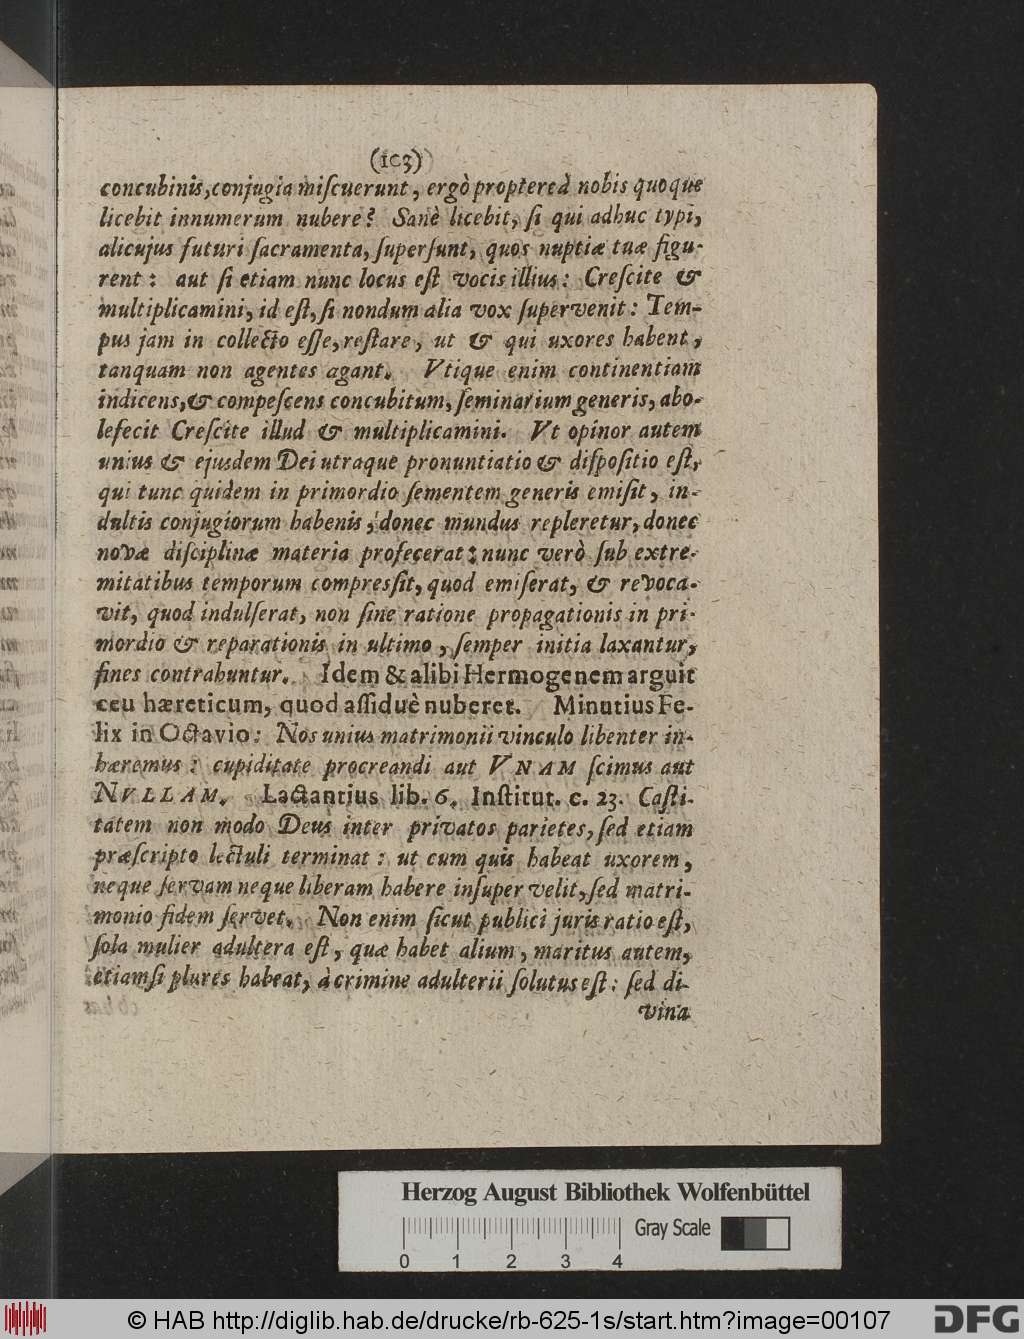 (103)
concubinis, conjugia miſcuerunt, ergò proptereà nobis quoque
licebit innumerum nubere? Sanè licebit, ſi qui adhuc typi,
alicujus futuri ſacramenta, ſuperſunt, quos nuptiæ tuæ figu-
rent: aut ſi etiam nunc locus eſt vocis illius: Creſcite &
multiplicamini, id eſt, ſi nondum alia vox ſupervenit: Tem-
pus jam in collecto eſſe, reſtare, ut & qui uxores habent,
tanquam non agentes agant. Vtique enim continentiam
indicens, & compeſcens concubitum, ſeminarium generis, abo-
lefecit Creſcite illud & multiplicamini. Vt opinor autem
unius & ejusdem Dei utraque pronuntiatio & diſpoſitio eſt,
qui tunc quidem in primordio ſementem generis emiſit, in-
dultis conjugiorum habenis, donec mundus repleretur, donec
novæ diſciplinæ materia profecerat; nunc verò ſub extre-
mitatibus temporum compresſit, quod emiſerat, & revoca-
vit, quod indulſerat, non ſine ratione propagationis in pri-
mordio & reparationis in ultimo, ſemper initia laxantur,
fines contrahuntur. Idem & alibi Hermogenem arguit
ceu hæreticum, quod aſſiduè nuberet. Minutius Fe-
lix in Octavio: Nos unius matrimonii vinculo libenter in-
hæremus: cupiditate procreandi aut VNAM ſcimus aut
NVLLAM. Lactantius lib. 6. Inſtitut. c. 23. Caſti-
tatem non modo Deus inter privatos parietes, ſed etiam
præſcripto lectuli terminat: ut cum quis habeat uxorem,
neque ſervam neque liberam habere inſuper velit, ſed matri-
monio fidem ſervet. Non enim ſicut publici juris ratio eſt,
ſola mulier adultera eſt, quæ habet alium, maritus autem,
etiamſi plures habeat, à crimine adulterii ſolutus eſt: ſed di-
vina
Herzog August Bibliothek Wolfenbüttel
Gray Scale
0 1 2 3 4
© HAB http://diglib.hab.de/drucke/rb-625-1s/start.htm?image=00107
DFG